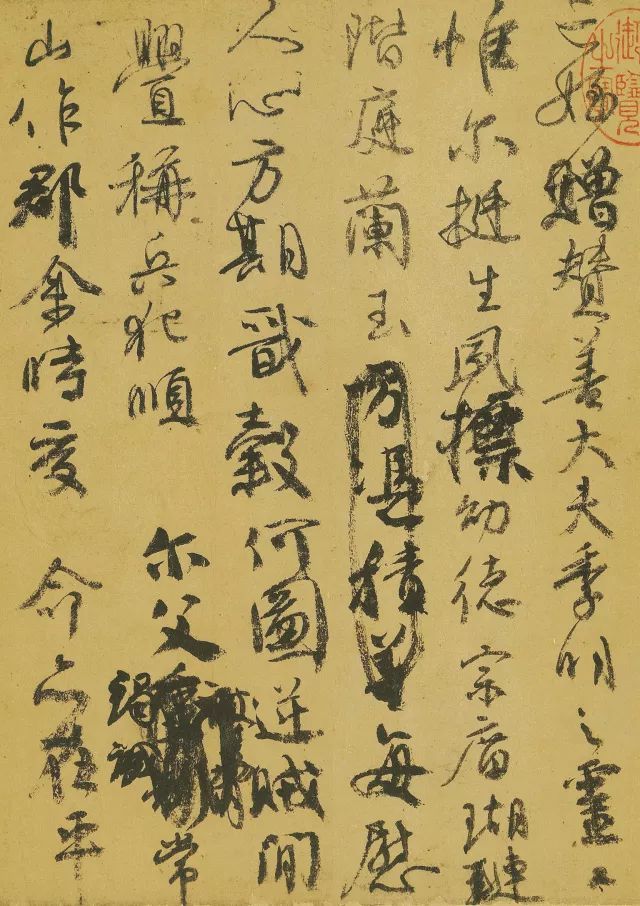 亡姪贈贊善大夫季明之靈曰
惟尔挺生夙標幼德宗廟瑚璉
階庭蘭玉方憑積善每慰
人心方期戩穀何圖逆賊閒
釁稱兵犯順尔父竭誠常
山作郡余時受命亦在平